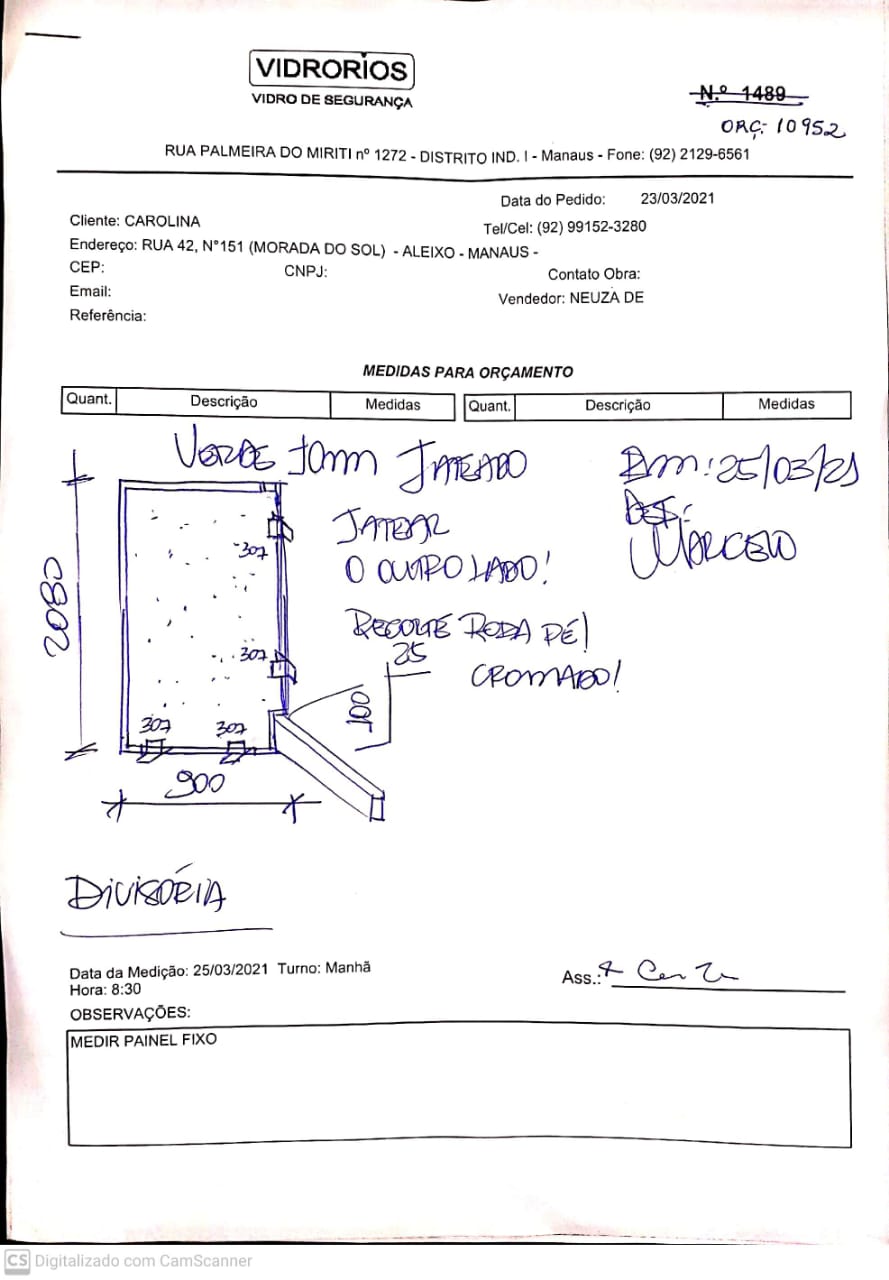 VIDRORIOS
VIDRO DE SEGURANÇA
N.º 1489
ORÇ: 10952
RUA PALMEIRA DO MIRITI nº 1272 - DISTRITO IND. I - Manaus - Fone: (92) 2129-6561
Data do Pedido: 23/03/2021
Cliente: CAROLINA
Tel/Cel: (92) 99152-3280
Endereço: RUA 42, N°151 (MORADA DO SOL) - ALEIXO - MANAUS -
CEP:
CNPJ:
Contato Obra:
Email:
Vendedor: NEUZA DE
Referência:
MEDIDAS PARA ORÇAMENTO
Quant. Descrição Medidas Quant. Descrição Medidas
VERDE 10mm JATEADO
Em: 25/03/21
JATEAR
DES:
MARCELO
O OUTRO LADO!
307
2080
RECORTE RODA PÉ!
25
307
CROMADO!
100
307 307
900
DIVISÓRIA
Data da Medição: 25/03/2021 Turno: Manhã
Hora: 8:30
Ass.:
OBSERVAÇÕES:
MEDIR PAINEL FIXO
CS Digitalizado com CamScanner